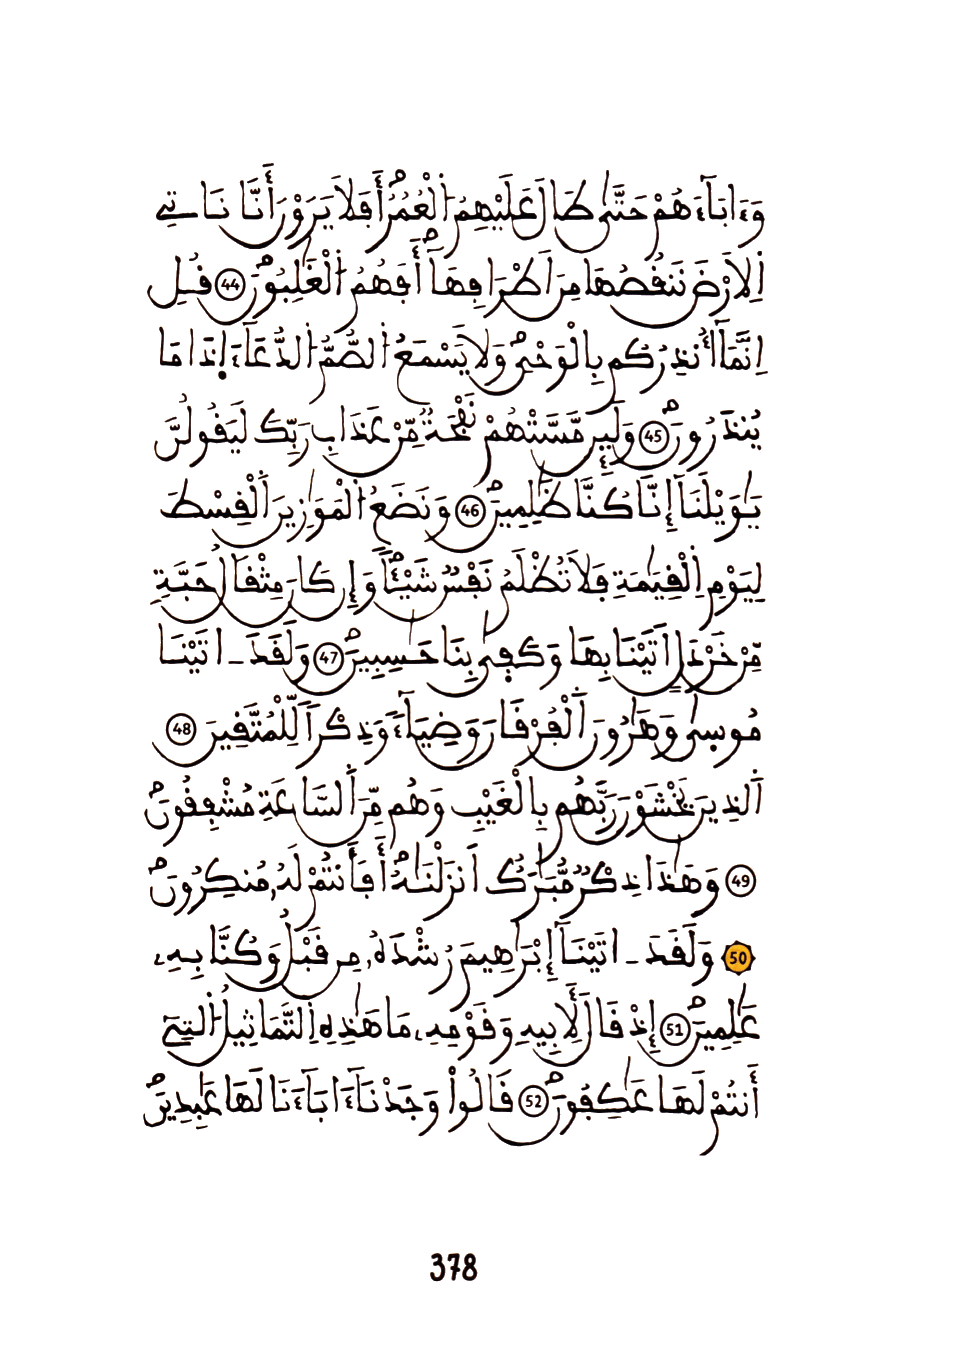 وَءَابَآءَهُمْ حَتَّىٰ طَالَ عَلَيْهِمُ اُ۬لْعُمُرُۖ أَفَلَا يَرَوْنَ أَنَّا نَاتِے
اِ۬لَارْضَ نَنقُصُهَا مِنَ اَطْرَافِهَآۖ أَفَهُمُ اُ۬لْغَٰلِبُونَۖ 44 قُلِ
اِنَّمَآ أُنذِرُكُم بِالْوَحْيِۖ وَلَا يَسْمَعُ اُ۬لصُّمُّ اُ۬لدُّعَآءَ اِ۪ذَا مَا
يُنذَرُونَۖ 45 وَلَئِن مَّسَّتْهُمْ نَفْحَةٌ مِّنْ عَذَابِ رَبِّكَ لَيَقُولُنَّ
يَٰوَيْلَنَآ إِنَّا كُنَّا ظَٰلِمِينَۖ 46 وَنَضَعُ اُ۬لْمَوَٰزِينَ اَ۬لْقِسْطَ
لِيَوْمِ اِ۬لْقِيَٰمَةِ فَلَا تُظْلَمُ نَفْسٌ شَيْـٔاًۖ وَإِن كَانَ مِثْقَالُ حَبَّةٍ
مِّنْ خَرْدَلٍ اَتَيْنَا بِهَا وَكَف۪ىٰ بِنَا حَٰسِبِينَۖ 47 وَلَقَدَ اٰتَيْنَا
مُوس۪ىٰ وَهَٰرُونَ اَ۬لْفُرْقَانَ وَضِيَآءً وَذِكْراً لِّلْمُتَّقِينَ 48
اَ۬لذِينَ يَخْشَوْنَ رَبَّهُم بِالْغَيْبِ وَهُم مِّنَ اَ۬لسَّاعَةِ مُشْفِقُونَۖ
49 وَهَٰذَا ذِكْرٌ مُّبَٰرَكٌ اَنزَلْنَٰهُۖ أَفَأَنتُمْ لَهُۥ مُنكِرُونَۖ
50 وَلَقَدَ اٰتَيْنَآ إِبْرَٰهِيمَ رُشْدَهُۥ مِن قَبْلُ وَكُنَّا بِهِۦ
عَٰلِمِينَۖ 51 إِذْ قَالَ لِأَبِيهِ وَقَوْمِهِۦ مَا هَٰذِهِ اِ۬لتَّمَاثِيلُ اُ۬لتِےٓ
أَنتُمْ لَهَا عَٰكِفُونَۖ 52 قَالُواْ وَجَدْنَآ ءَابَآءَنَا لَهَا عَٰبِدِينَۖ
378